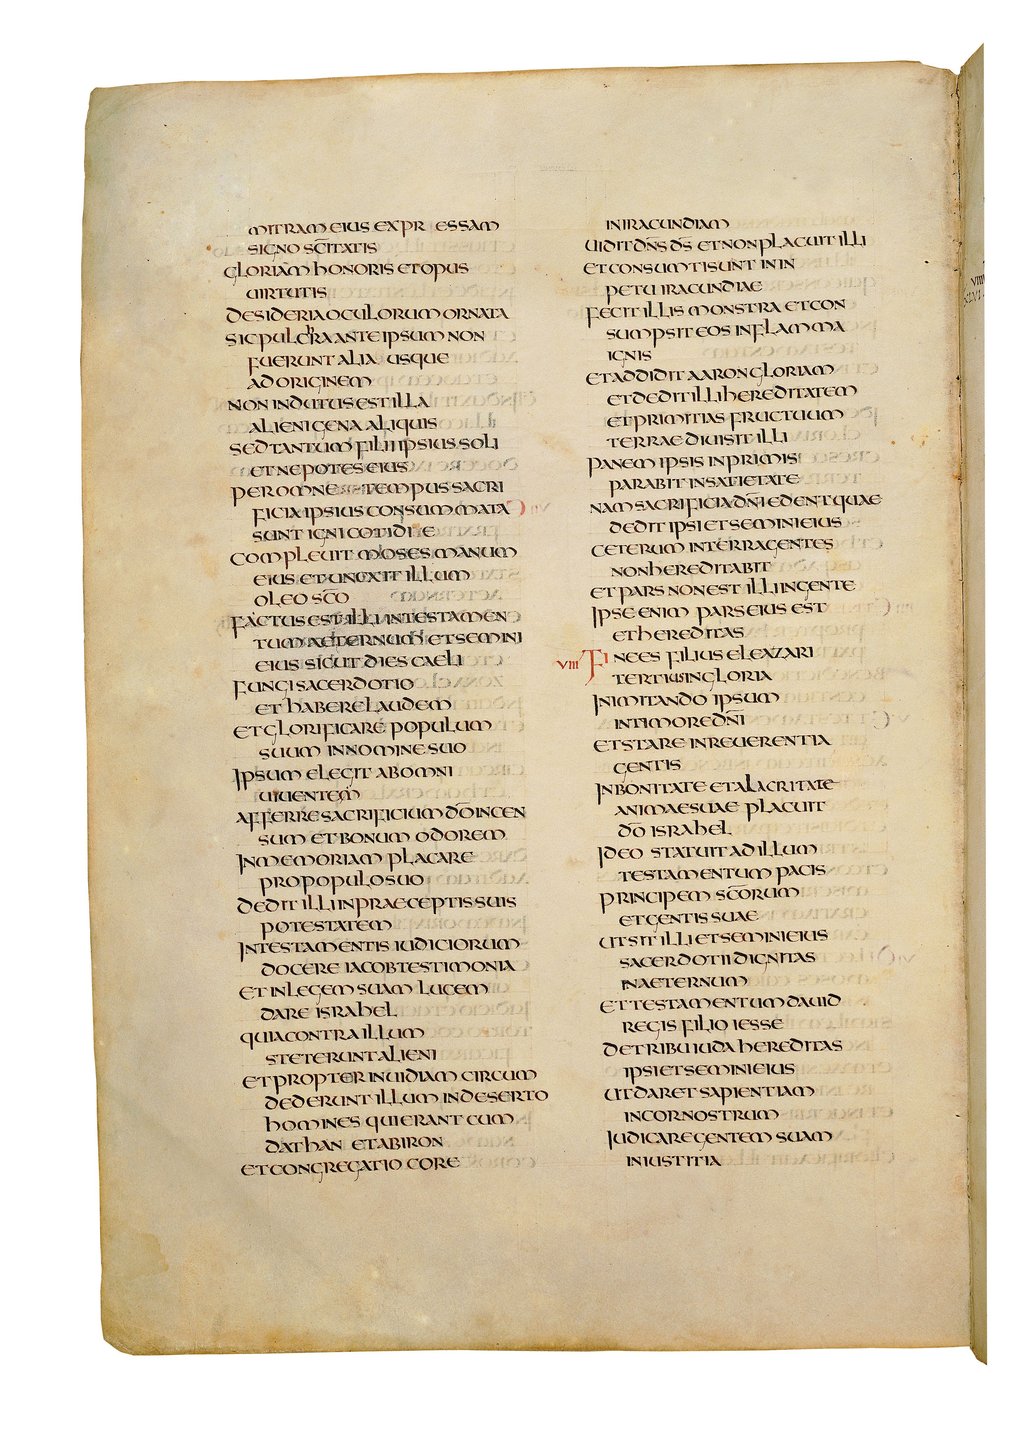 MITRAM EIUS EXPR ESSAM
SIGNO SC̅ITATIS
GLORIAM HONORIS ET OPUS
UIRTUTIS
DESIDERIA OCULORUM ORNATA
SIC PULChRA ANTE IPSUM NON
FUERUNT ALIA USQUE
AD ORIGINEM
NON INDUTUS EST ILLA
ALIENIGENA ALIQUIS
SED TANTUM FILII IPSIUS SOLI
ET NEPOTES EIUS
PER OMNE TEMPUS SACRI
FICIA IPSIUS CONSUMMATA
SUNT IGNI COTIDIE
COMPLEUIT MOSES MANUM
EIUS ET UNXIT ILLUM
OLEO SC̅O
FACTUS EST ILLI IN TESTAMEN
TUM AETERNUM ET SEMINI
EIUS SICUT DIES CAELI
FUNGI SACERDOTIO
ET HABERE LAUDEM
ET GLORIFICARE POPULUM
SUUM IN NOMINE SUO
IPSUM ELEGIT AB OMNI
UIUENTEM
AFFERRE SACRIFICIUM D̅O INCEN
SUM ET BONUM ODOREM
IN MEMORIAM PLACARE
PRO POPULO SUO
DEDIT ILLI IN PRAECEPTIS SUIS
POTESTATEM
IN TESTAMENTIS IUDICIORUM
DOCERE IACOB TESTIMONIA
ET IN LEGEM SUAM LUCEM
DARE ISRAHEL
QUIA CONTRA ILLUM
STETERUNT ALIENI
ET PROPTER INUIDIAM CIRCUM
DEDERUNT ILLUM IN DESERTO
HOMINES QUI ERANT CUM
DATHAN ET ABIRON
ET CONGREGATIO CORE
IN IRACUNDIAM
UIDIT DN̅S D̅S ET NON PLACUIT ILLI
ET CONSUMTI SUNT IN IN
PETU IRACUNDIAE
FECIT ILLIS MONSTRA ET CON
SUMPSIT EOS IN FLAMMA
IGNIS
ET ADDIDIT AARON GLORIAM
ET DEDIT ILLI HEREDITATEM
ET PRIMITIAS FRUCTUUM
TERRAE DIUISIT ILLI
PANEM IPSIS IN PRIMIS
PARABIT IN SATIETATE
NAM SACRIFICIA DN̅I EDENT QUAE
DEDIT IPSI ET SEMINI EIUS
CETERUM IN TERRA GENTES
NON HEREDITABIT
ET PARS NON EST ILLI IN GENTE
IPSE ENIM PARS EIUS EST
ET HEREDITAS
VIII FINEES FILIUS ELEAZARI
TERTIUS IN GLORIA
IN IMITANDO IPSUM
IN TIMORE DN̅I
ET STARE IN REUERENTIA
GENTIS
IN BONITATE ET ALACRITATE
ANIMAE SUAE PLACUIT
D̅O ISRAHEL
IDEO STATUIT AD ILLUM
TESTAMENTUM PACIS
PRINCIPEM SC̅ORUM
ET GENTIS SUAE
UT SIT ILLI ET SEMINI EIUS
SACERDOTII DIGNITAS
IN AETERNUM
ET TESTAMENTUM DAUID
REGIS FILIO IESSE
DE TRIBU IUDA HEREDITAS
IPSI ET SEMINI EIUS
UT DARET SAPIENTIAM
IN COR NOSTRUM
IUDICARE GENTEM SUAM
IN IUSTITIA